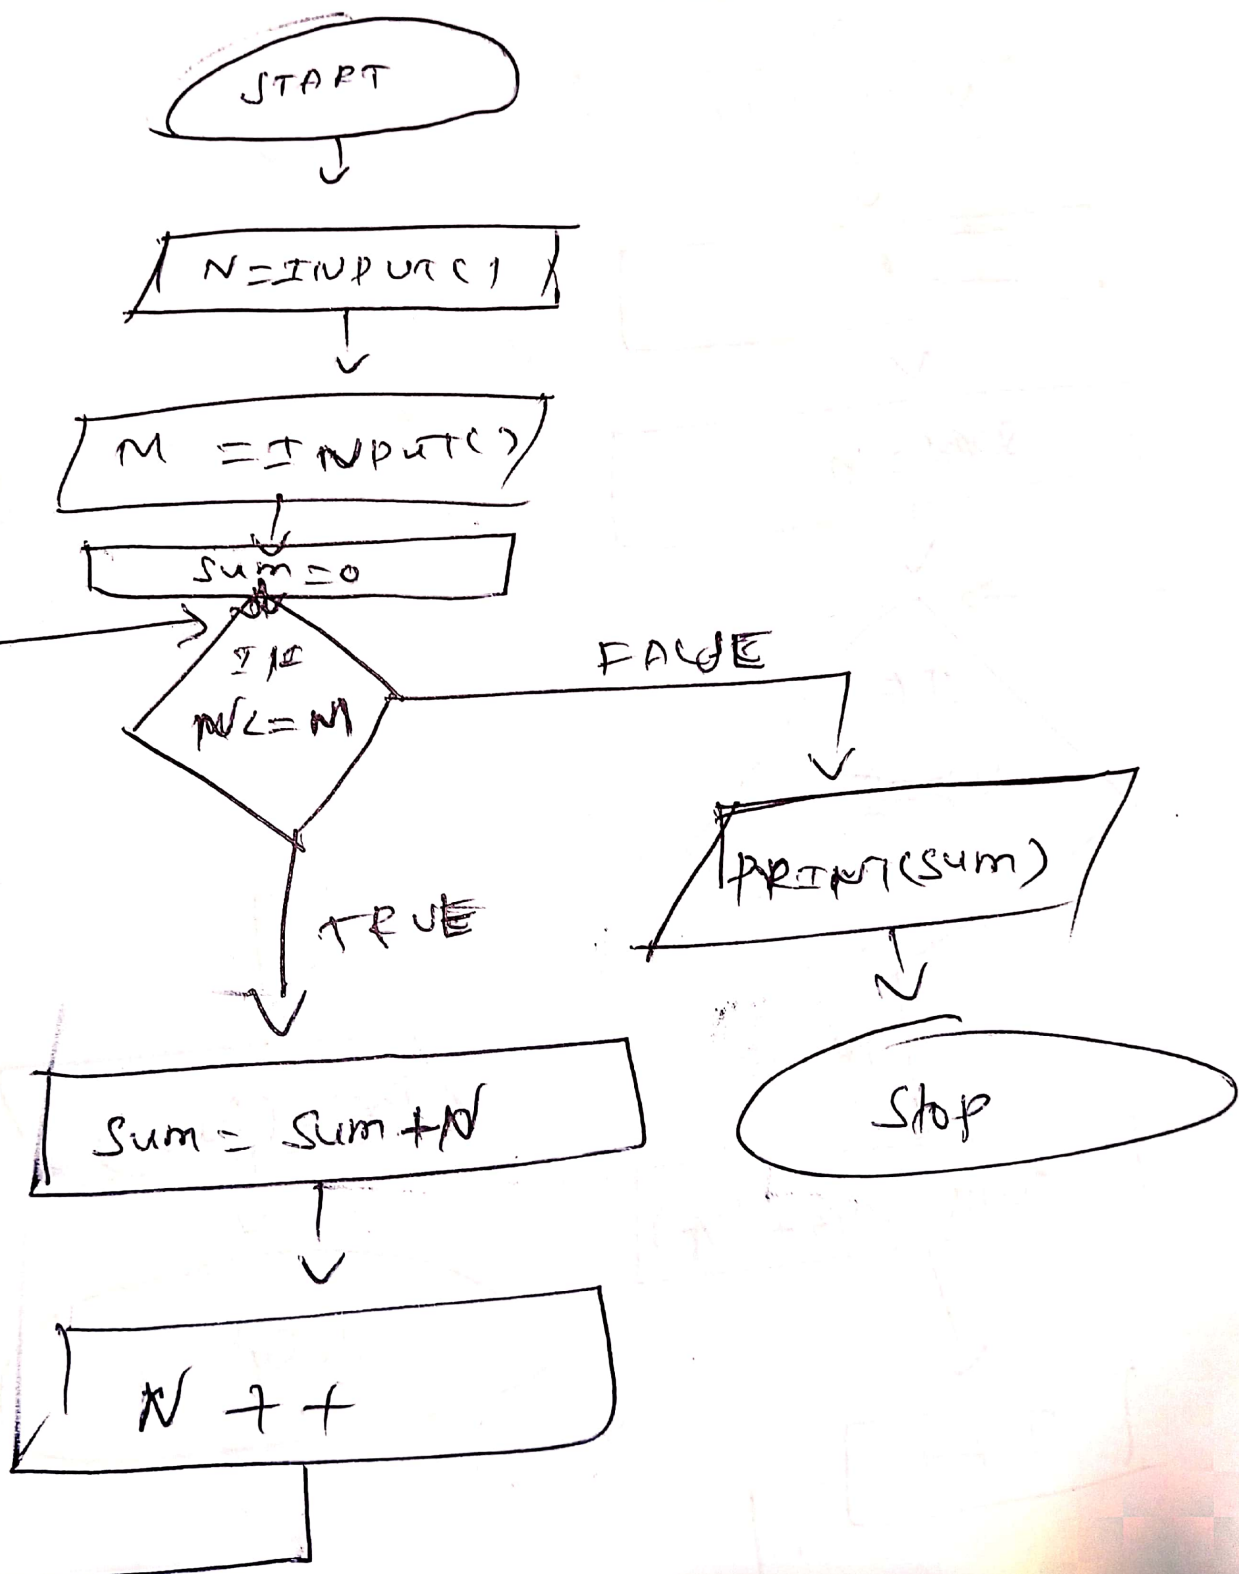 START
N=INPUT()
M =INPUT()
Sum=0
IS
N<=M
FALSE
TRUE
PRINT(SUM)
Sum= Sum+N
Stop
N ++